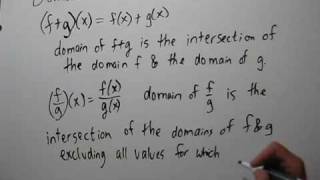 (f+g)(x) = f(x) + g(x)
domain of f+g is the intersection of
the domain f & the domain of g.
(f/g)(x) = f(x)/g(x) domain of f/g is the
intersection of the domains of f & g
excluding all values for which